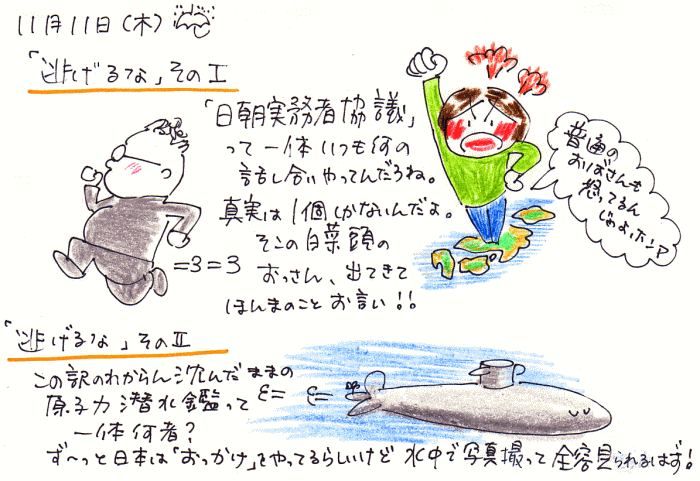 11月11日(木)
「逃げるな」そのI
「日朝実務者協議」
って一体いつも何の
話し合いやってんだろね。
真実は1個しかないんだよ。
そこの白菜顔の
おっさん、出てきて
ほんまのことお言い!!
=3=3
普通の
おばさんも
怒ってるん
じゃよッ
「逃げるな」そのII
この訳のわからん沈んだままの
原子力潜水鑑って
一体何者?
ず〜っと日本は「おっかけ」をやってるらしいけど 水中で写真撮って全容見られるはず!
ε= ε=